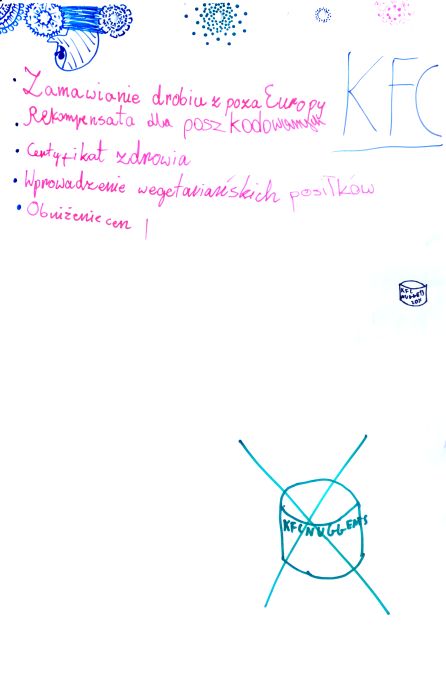 KFC
Zamawianie drobiu z poza Europy
Rekompensata dla poszkodowanych
Certyfikat zdrowia
Wprowadzenie wegetariańskich posiłków
Obniżenie cen
KFC
NUGGETS
KFC NUGGETS